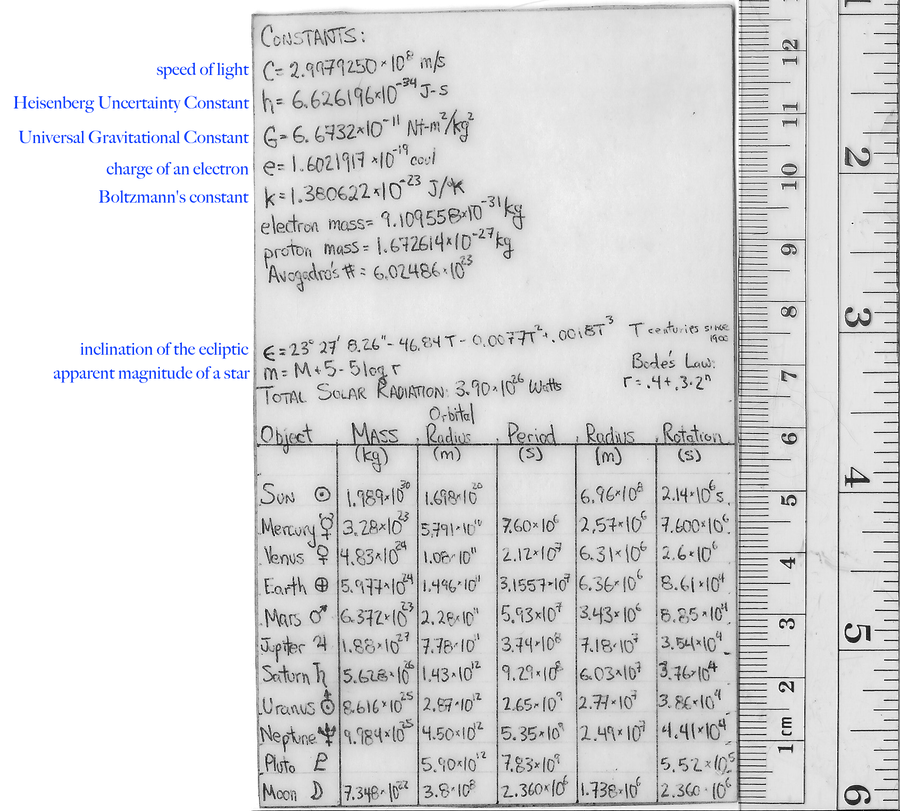 CONSTANTS:
speed of light C = 2.9979250×10⁸ m/s
Heisenberg Uncertainty Constant h = 6.626196×10⁻³⁴ J-s
Universal Gravitational Constant G = 6.6732×10⁻¹¹ Nt-m²/kg²
charge of an electron e = 1.6021917×10⁻¹⁹ coul
Boltzmann's constant k = 1.380622×10⁻²³ J/°K
electron mass = 9.109558×10⁻³¹ kg
proton mass = 1.672614×10⁻²⁷ kg
Avogadro's # = 6.02486×10²³
inclination of the ecliptic ϵ = 23° 27' 8.26" - 46.84T - 0.0077T² + .0018T³ T centuries since 1900
apparent magnitude of a star m = M + 5 - 5 log r Bode's Law:
r = .4 + .3·2ⁿ
TOTAL SOLAR RADIATION: 3.90×10²⁶ Watts
Orbital
Object MASS Radius Period Radius Rotation
(kg) (m) (s) (m) (s)
Sun ☉ 1.989×10³⁰ 1.698×10²⁰ 6.96×10⁸ 2.14×10⁶ s.
Mercury ☿ 3.28×10²³ 5.791×10¹⁰ 7.60×10⁶ 2.57×10⁶ 7.600×10⁶
Venus ♀ 4.83×10²⁴ 1.08×10¹¹ 2.12×10⁷ 6.31×10⁶ 2.6×10⁶
Earth ⊕ 5.977×10²⁴ 1.496×10¹¹ 3.1557×10⁷ 6.36×10⁶ 8.61×10⁴
Mars ♂ 6.372×10²³ 2.28×10¹¹ 5.93×10⁷ 3.43×10⁶ 8.85×10⁴
Jupiter ♃ 1.88×10²⁷ 7.78×10¹¹ 3.74×10⁸ 7.18×10⁷ 3.54×10⁴
Saturn ♄ 5.628×10²⁶ 1.43×10¹² 9.29×10⁸ 6.03×10⁷ 3.76×10⁴
Uranus ⛢ 8.616×10²⁵ 2.87×10¹² 2.65×10⁹ 2.77×10⁷ 3.86×10⁴
Neptune ♆ 9.984×10²⁵ 4.50×10¹² 5.35×10⁹ 2.49×10⁷ 4.41×10⁴
Pluto ♇ 5.90×10¹² 7.83×10⁹ 5.52×10⁵
Moon ☽ 7.348×10²² 3.8×10⁸ 2.360×10⁶ 1.738×10⁶ 2.360×10⁶
12
11
10
9
8
7
6
5
4
3
2
1 cm
1
2
3
4
5
6